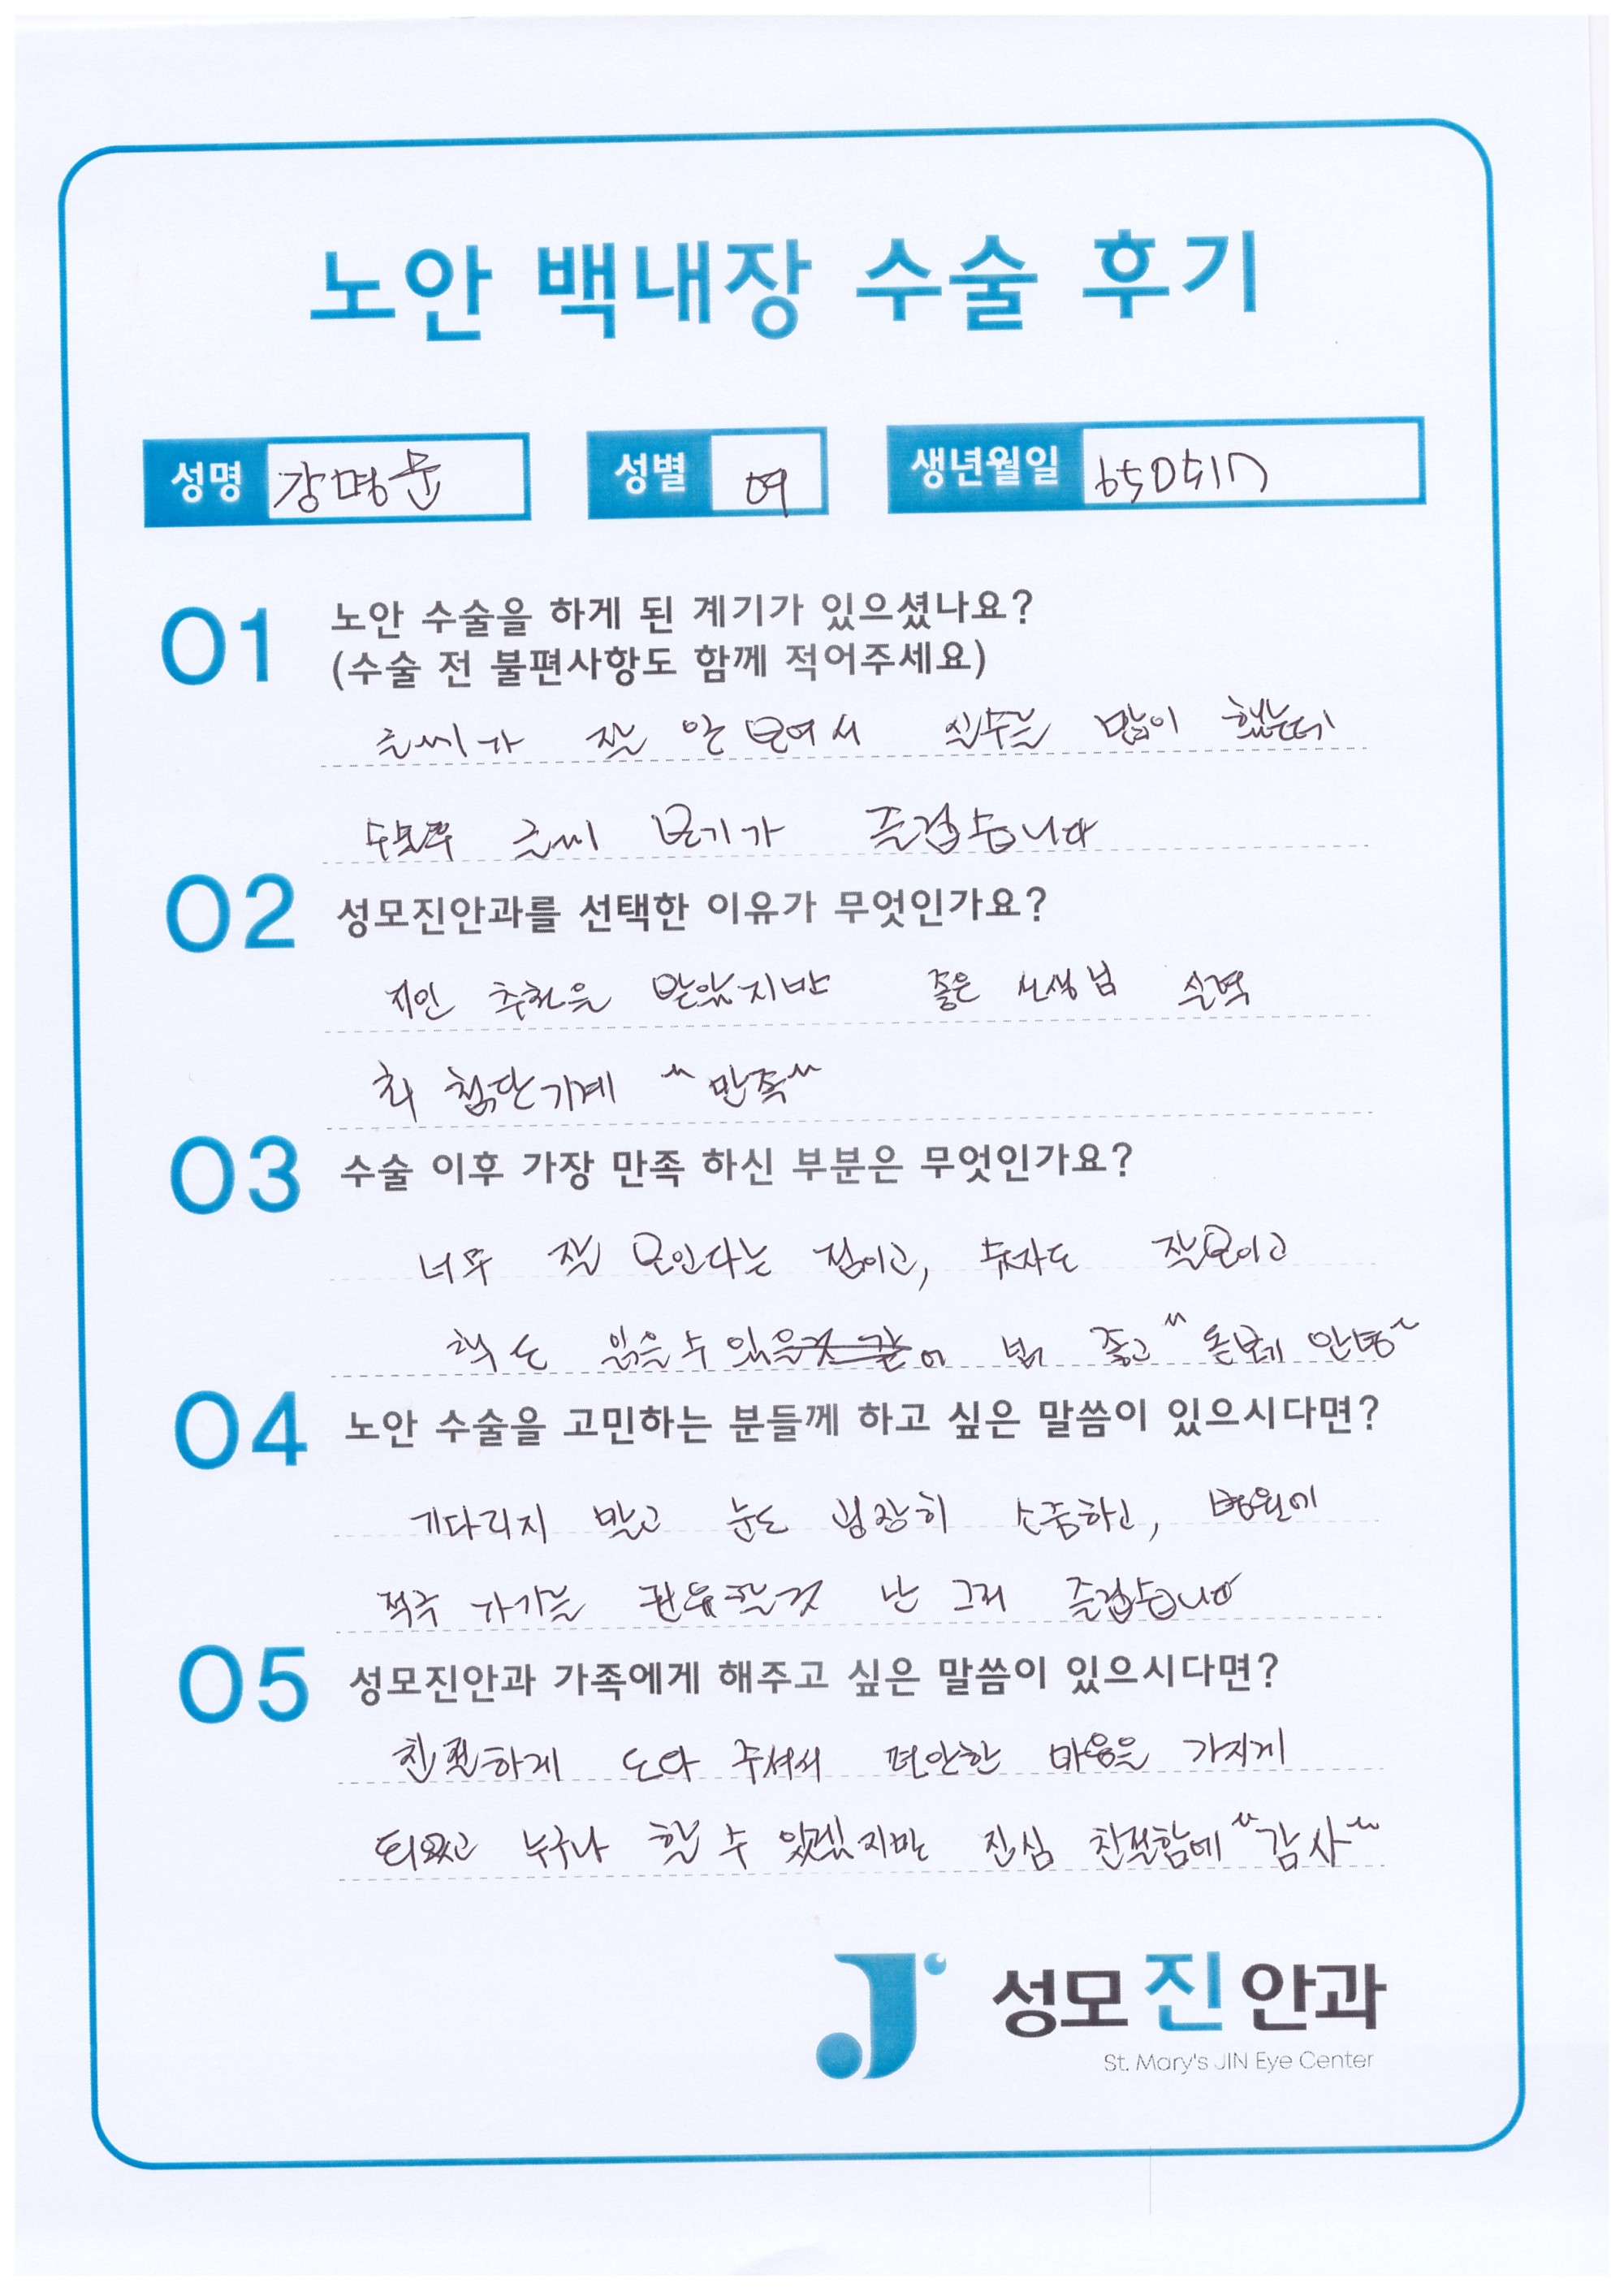 노안 백내장 수술 후기
성명 강명운 성별 여 생년월일 650517
01 노안 수술을 하게 된 계기가 있으셨나요?
(수술 전 불편사항도 함께 적어주세요)
글씨가 잘 안 보여서 실수를 많이 했는데
글씨 보기가 즐겁습니다
02 성모진안과를 선택한 이유가 무엇인가요?
지인 추천을 받았지만 좋은 선생님 실력
최 첨단기계 "만족"
03 수술 이후 가장 만족 하신 부분은 무엇인가요?
너무 잘 보인다는 점이고, 숫자도 잘보이고
책도 읽을수 있을 좋고 "돋보기 안녕"
04 노안 수술을 고민하는 분들께 하고 싶은 말씀이 있으시다면?
기다리지 말고 눈도 굉장히 소중하고, 병원에
적극 가기를 권유할것 난 그저 즐겁습니다
05 성모진안과 가족에게 해주고 싶은 말씀이 있으시다면?
친절하게 도와 주셔서 편안한 마음을 가지게
되었고 누구나 할 수 있겠지만 진심 친절함에 "감사"
성모진안과
St. Mary's JIN Eye Center